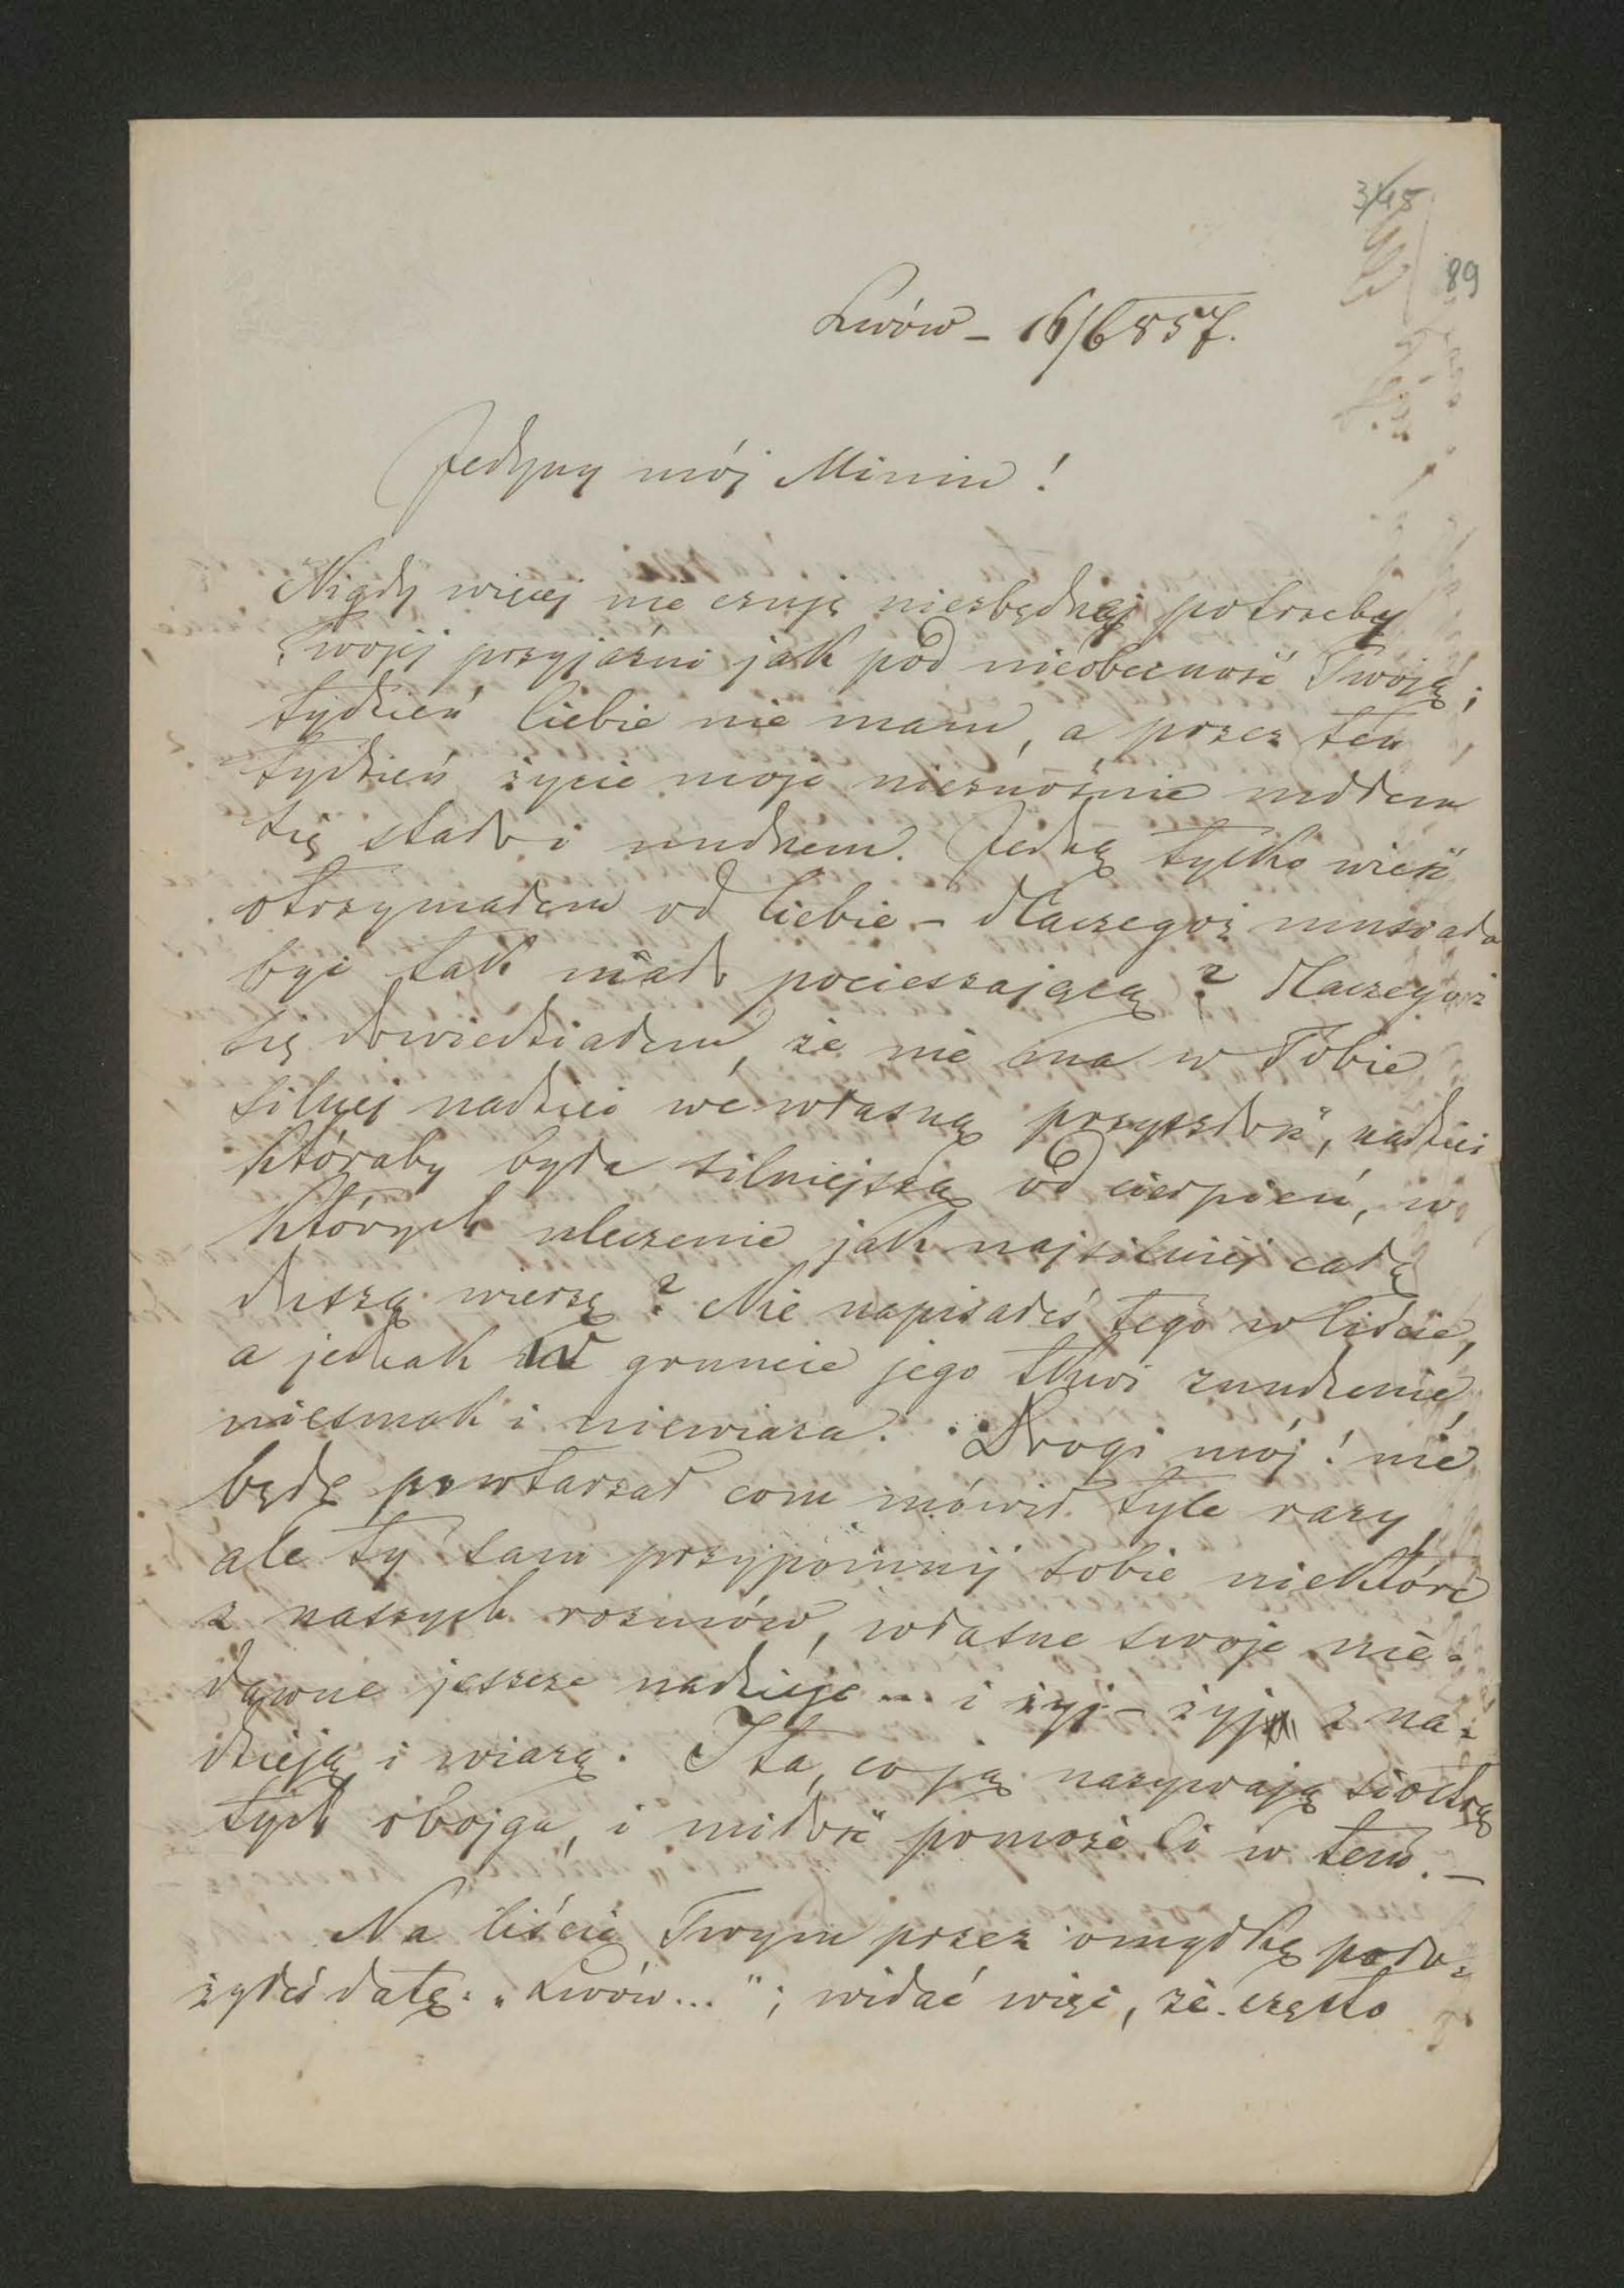 89
Lwów – 16/6 857.
Jedyny mój Miniu!
Nigdy więcej nie czuję niezbędnej potrzeby
Twojej przyjaźni jak pod nieobecność Twoją;
tydzień Ciebie nie mam, a przez ten
tydzień życie moje nieznośnie mdłem
się stało i nudnem. Jedną tylko wieść
otrzymałem od Ciebie – dlaczegoż musiała
być tak mało pocieszającą? dlaczegoż
się dowiedziałem, że nie ma w Tobie
silnej nadziei we własną przyszłość, nadziei
któraby była silniejszą od cierpień, w
których uleczenie jak najsilniej całą
duszą wierzę? Nie napisałeś tego w liście,
a jednak w gruncie jego tkwi znudzenie,
niesmak i niewiara. Drogi mój! nie
będę powtarzał com mówił tyle razy,
ale ty sam przypomnij sobie niektóre
z naszych rozmów, własne swoje nie-
dawne jeszcze nadzieje... i żyj – żyj z na-
dzieją i wiarą. I ta, co ją nazywają siostrą
tych obojga, i miłość pomoże Ci w tem. –
Na liście Twym przez omyłkę poło-
żyłeś datę: „Lwów..."; widać więc, że często